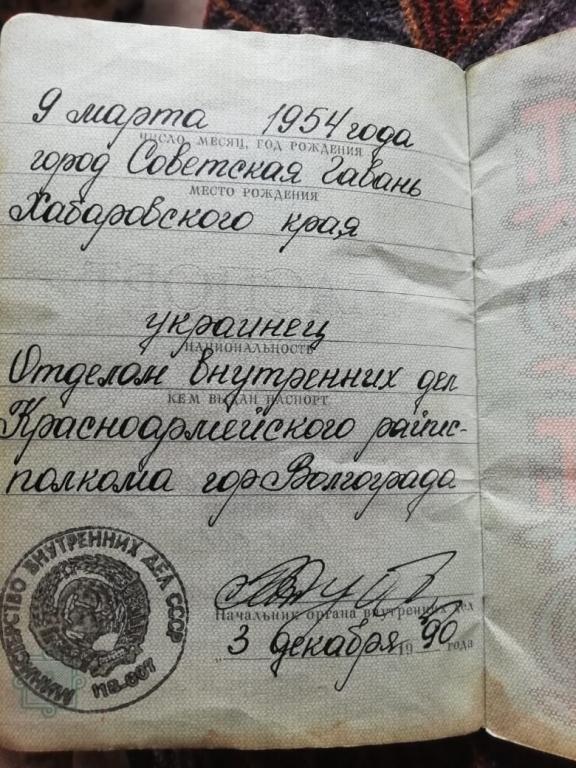 9 марта 1954 года
ЧИСЛО, МЕСЯЦ, ГОД РОЖДЕНИЯ
город Советская Гавань
МЕСТО РОЖДЕНИЯ
Хабаровского края
украинец
НАЦИОНАЛЬНОСТЬ
Отделом внутренних дел
КЕМ ВЫДАН ПАСПОРТ
Красноармейского райис-
полкома гор Волгограда
МИНИСТЕРСТВО ВНУТРЕННИХ ДЕЛ СССР
Начальник органа внутренних дел
„3 декабря 1990 года